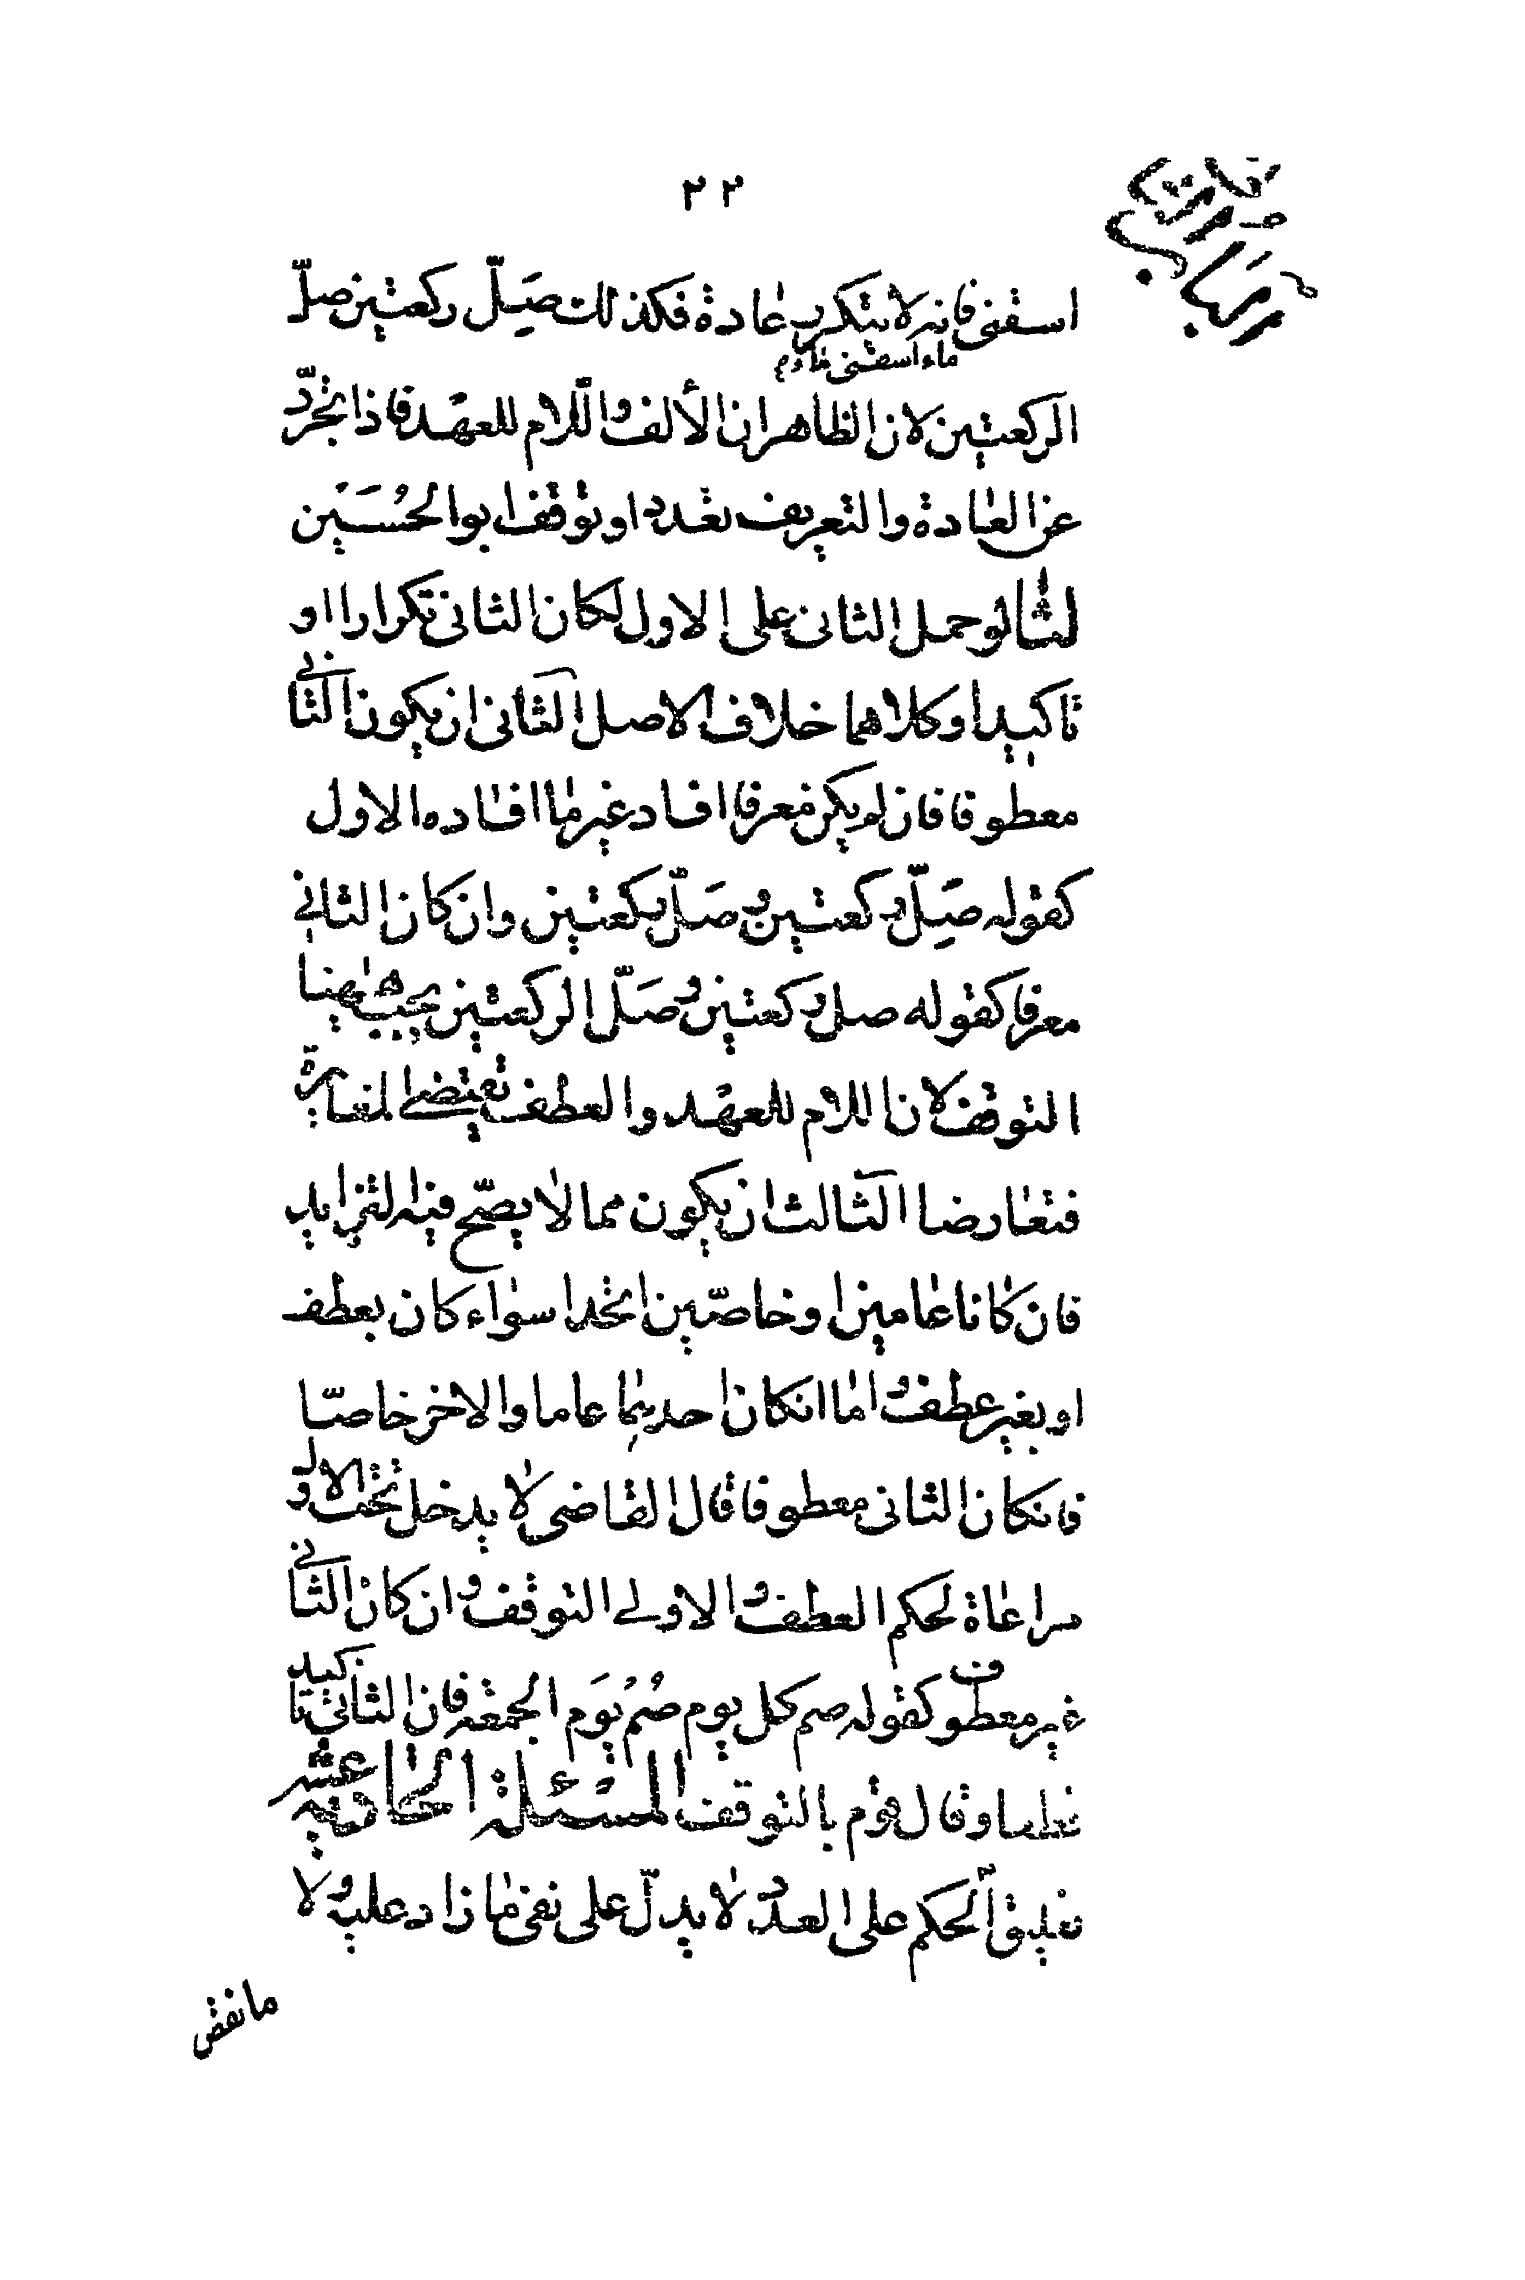 ٢٢
اسقنى فانه لا يتكرر عادة فكذلك صلّ ركعتين صلّ
ماء اسقنى ماء م
الركعتين لان الظاهر ان الألف واللام للعهد فاذا تجرّد
عن العادة والتعريف تعدد او توقف ابو الحسين
لنا لو حمل الثانى على الاول لكان الثانى تكرارا او
تاكيدا وكلاهما خلاف الاصل الثانى ان يكون الثانى
معطوفا فان لم يكن معرفا افاد غير ما افاده الاول
كقوله صلّ ركعتين وصلّ ركعتين وان كان الثانى
معرفا كقوله صل ركعتين وصلّ الركعتين يجب ههنا
التوقف لان اللام للعهد والعطف يقتضى المغايرة
فتعارضا الثالث ان يكون مما لا يصحّ فيه التزايد
فان كانا عامين او خاصّين اتحدا سواء كان بعطف
او بغير عطف واما انكان احديهما عاما والاخر خاصّا
فانكان الثانى معطوفا قال القاضى لا يدخل تحت الاول
مراعاة لحكم العطف والاولى التوقف وان كان الثانى
غير معطوف كقوله صم كل يوم صُم يوم الجمعة فان الثانى تاكيد
قطعا وقال قوم بالتوقف المسئلة الحادية عشر
تعليق الحكم على العدد لا يدلّ على نفى ما زاد عليه ولا
ما نقص